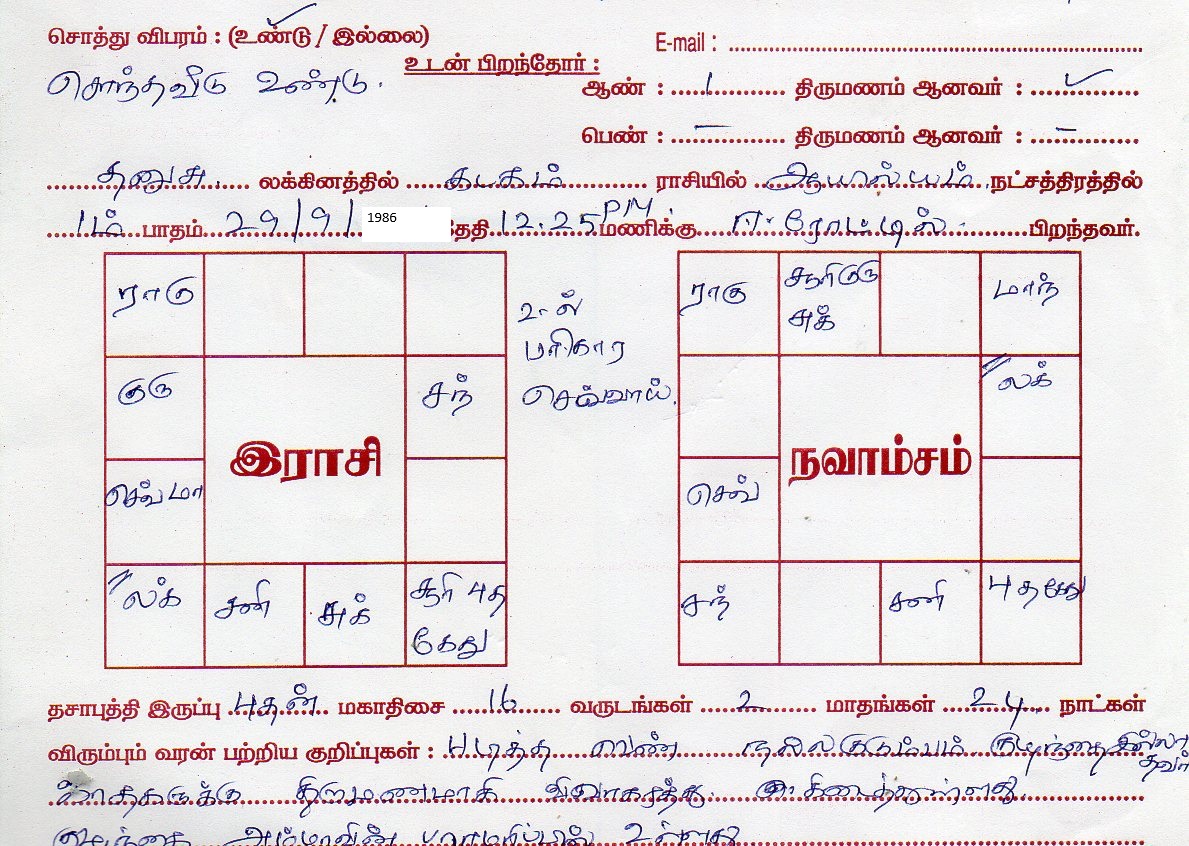 சொத்து விபரம் : (உண்டு / இல்லை)
E-mail :
சொந்தவீடு உண்டு.
உடன் பிறந்தோர் :
ஆண் : 1 திருமணம் ஆனவர் : ✓
பெண் : – திருமணம் ஆனவர் : –
தனுசு லக்கினத்தில் கடகம் ராசியில் ஆயில்யம் நட்சத்திரத்தில்
1ம் பாதம் 29/9/ 1986 தேதி 12.25 PM மணிக்கு பிறந்தவர்.
ராகு
குரு
சந்
செவ் மா
இராசி
லக்
சனி
சுக்
சூரி புத
கேது
2-ல்
பரிகார
செவ்வாய்.
ராகு
சூரி குரு
சுக்
மாந்
லக்
செவ்
நவாம்சம்
சந்
சனி
புத கேது
தசாபுத்தி இருப்பு புதன் மகாதிசை 16 வருடங்கள் 2 மாதங்கள் 24 நாட்கள்
விரும்பும் வரன் பற்றிய குறிப்புகள் : படித்த பெண் நல்ல குடும்பம் குழந்தை இல்லாதவர்
ஜாதகருக்கு திருமணமாகி விவாகரத்து கிடைத்துள்ளது
குழந்தை அம்மாவின் பராமரிப்பில் உள்ளது